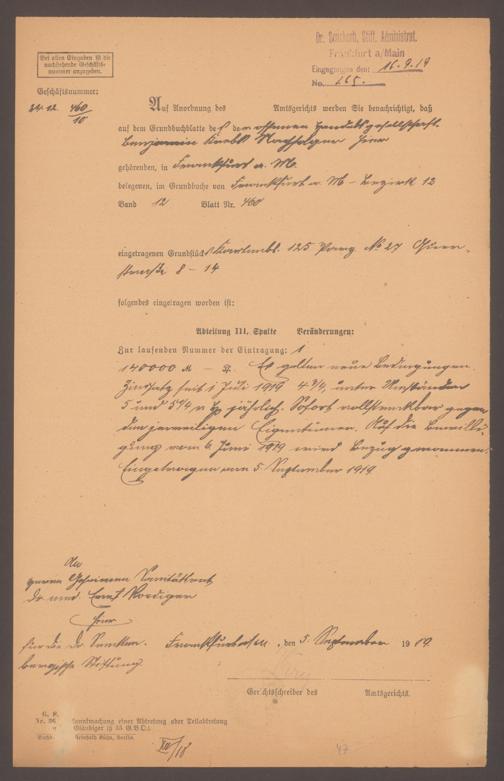 Dr. Senckenb. Stift. Administrat.
Frankfurt a/Main
Eingegangen den: 16.9.19
No. 665.
Bei allen Eingaben ist die
nachstehende Geschäfts-
nummer anzugeben.
Geschäftsnummer:
12 460/10
Auf Anordnung des Amtsgerichts werden Sie benachrichtigt, daß
auf dem Grundbuchblatte der offenen Handelsgesellschaft
Benjamin Nachfolger hier
gehörenden, in Frankfurt a. M.
belegenen, im Grundbuche von Frankfurt a. M - Bezirk 12
Band 12 Blatt Nr. 460
eingetragenen Grundstück Kartenbl. 125 Parz. No 27
strasse 8 - 14
folgendes eingetragen worden ist:
Abteilung III, Spalte Veränderungen:
Zur laufenden Nummer der Eintragung: 1
140000 M - Es gelten neue Bedingungen.
Zinssatz seit 1 Juli 1919 4 3/4, unter Umständen
5 und 5 1/4 jährlich. Sofort vollstreckbar gegen
den jeweiligen Eigentümer. Auf die Bewilli-
gung vom 6 Juni 1919 wird Bezug genommen.
Eingetragen am 5. September 1919.
An
Herrn Geheimen Sanitätsrat
Dr med. Ernst Roediger
hier
für die Dr Sencken-
bergische Stiftung
Frankfurt, den 5. September 1919.
Gerichtsschreiber des Amtsgerichts.
Bekanntmachung einer Abtretung oder Teilabtretung
Gläubiger (§ 55 G.B.O.).
Reinhold Kühn, Berlin.
47